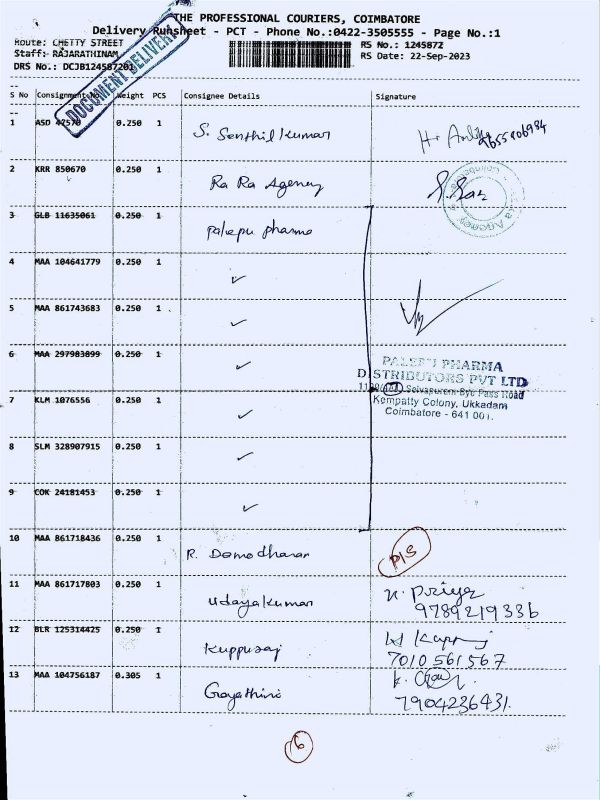 THE PROFESSIONAL COURIERS, COIMBATORE
Delivery Runsheet - PCT - Phone No.:0422-3505555 - Page No.:1
Route: CHETTY STREET RS No.: 1245872
Staff: RAJARATHINAM RS Date: 22-Sep-2023
DRS No.: DCJB124587201
DOCUMENT DELIVERY
S No Consignment No Weight PCS Consignee Details Signature
1 ASD 47570 0.250 1 S. Senthil Kumar 9655106984
2 KRR 850670 0.250 1 Ra Ra Agency
3 GLB 11635061 0.250 1 Palepu pharma
4 MAA 104641779 0.250 1 ✓
5 MAA 861743683 0.250 1 ✓
6 MAA 297983899 0.250 1 ✓
PALEPU PHARMA
DISTRIBUTORS PVT LTD
Selvapuram Bye Pass Road
Kempatty Colony, Ukkadam
Coimbatore - 641 001.
7 KLM 1076556 0.250 1 ✓
8 SLM 328907915 0.250 1 ✓
9 COK 24181453 0.250 1 ✓
10 MAA 861718436 0.250 1 R. Damodharan P/S
11 MAA 861717803 0.250 1 Udayakumar n. Priya
9789219336
12 BLR 125314425 0.250 1 Kuppuraj
7010561567
13 MAA 104756187 0.305 1 Gayathiri
7904236431.
16